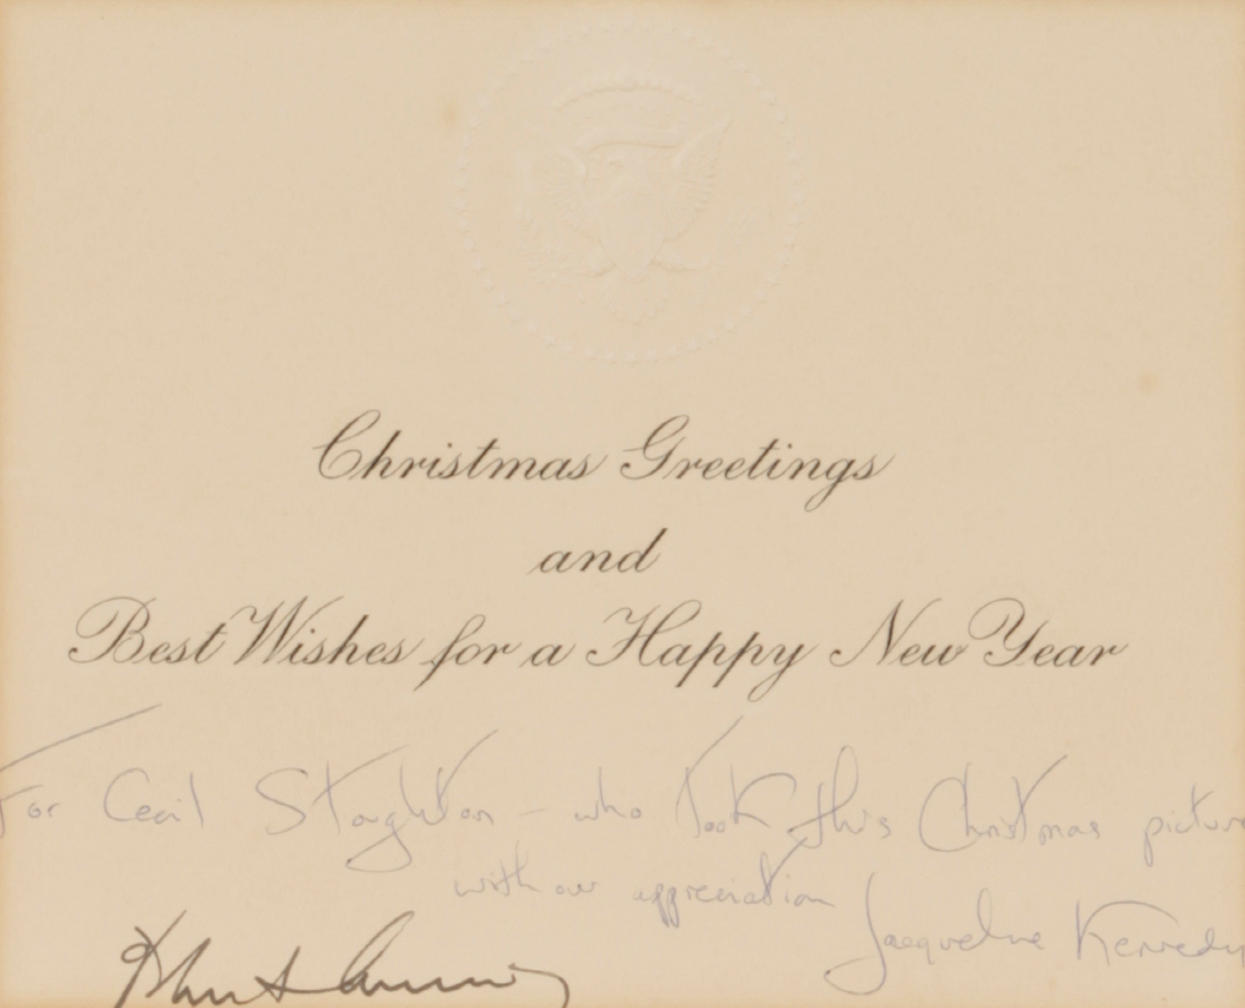 Christmas Greetings
and
Best Wishes for a Happy New Year
For Cecil Stoughton – who took this Christmas picture
with our appreciation
Jacqueline Kennedy